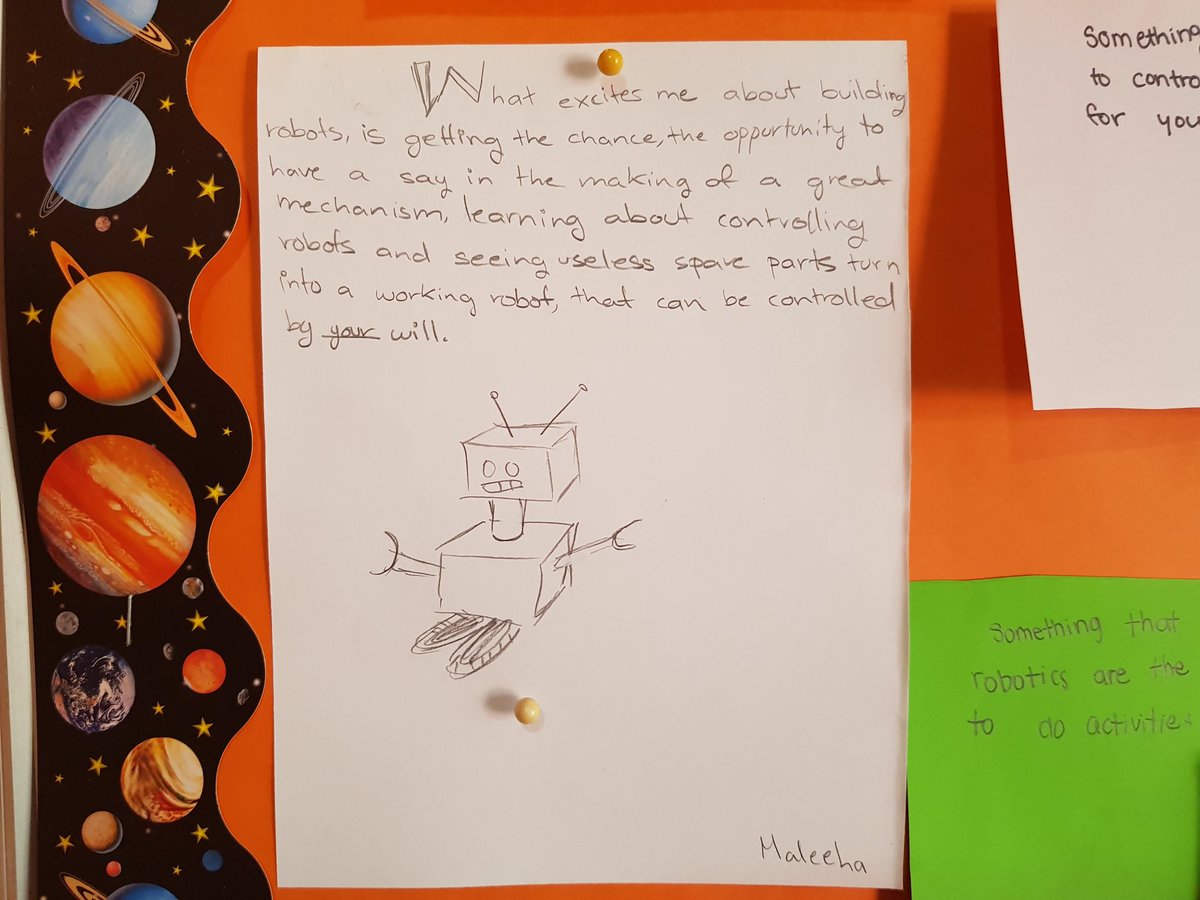 What excites me about building
robots, is getting the chance, the opportunity to
have a say in the making of a great
mechanism, learning about controlling
robots and seeing useless spare parts turn
into a working robot, that can be controlled
by your will.
Maleeha
Something
to contro
for you
Something that
robotics are the
to do activities